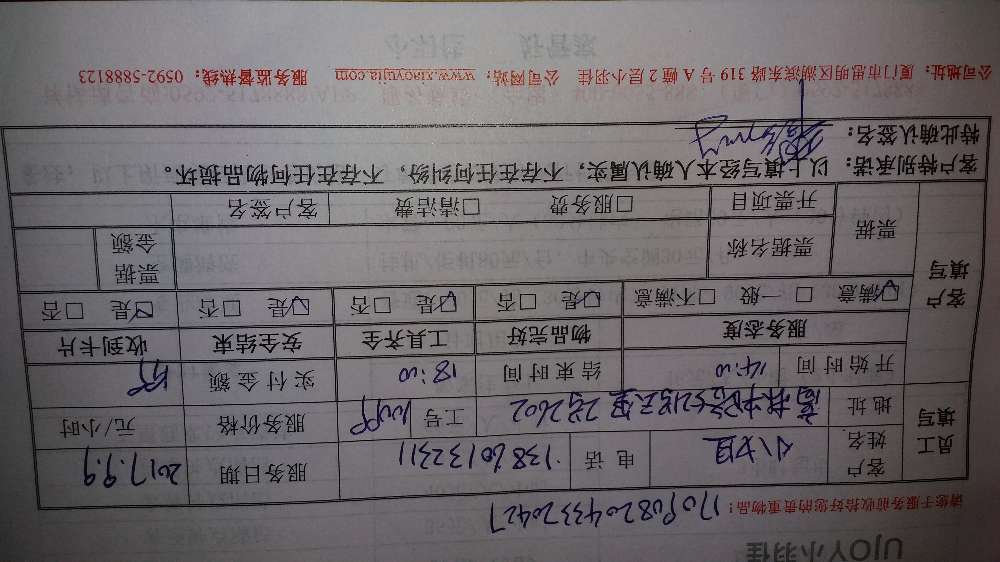 UJOY小羽佳
请您于服务前收拾好您的贵重物品:
1709082043320427
员工填写
客户姓名 小姐 电话 13860132311 服务日期 2017.9.9
地址 2602 工号 服务价格 元/小时
开始时间 14:00 结束时间 18:00 实付金额
客户填写
服务态度 物品完好 工具齐全 安全结束 收到卡片
☑满意 □一般 □不满意 ☑是 □否 ☑是 □否 ☑是 □否 ☑是 □否
票据 票据名称 票据金额
开票项目 □服务费 □清洁费 客户签名
客户特别承诺:以上填写经本人确认属实,不存在任何纠纷,不存在任何物品损坏。
特此确认签名:
公司地址:厦门市思明区湖滨东路 319 号 A 幢 2 层小羽佳 公司网站:www.xiaoyujia.com 服务监督热线:0592-5888123